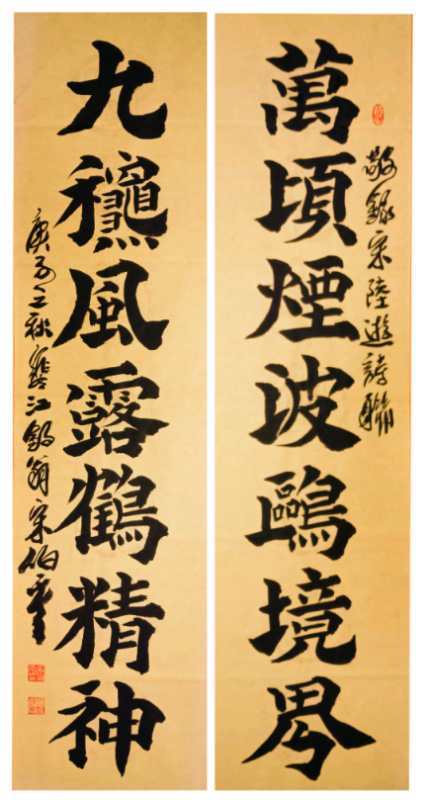 敬錄宋陸遊詩聯
萬頃煙波鷗境界
九龝風露鶴精神
庚子之秋寒江釣翁宋伯